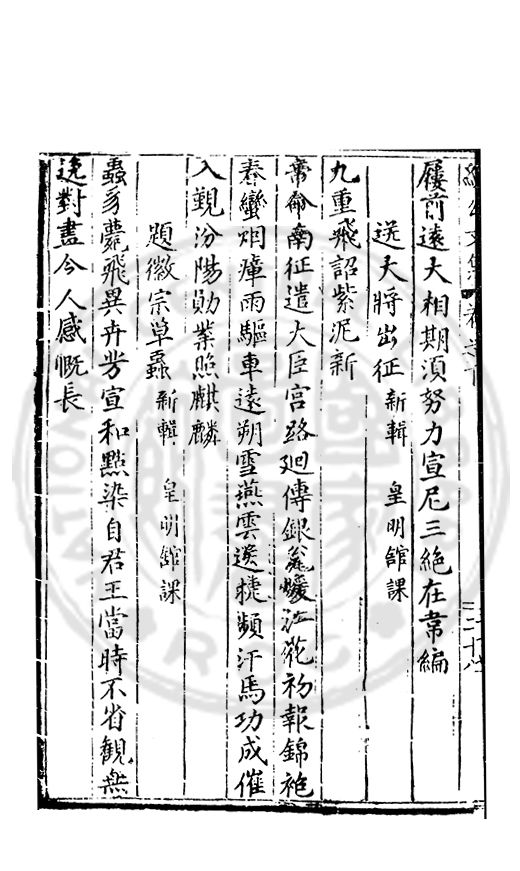 屐前遠大相期須努力宣尼三絶在韋編
送大將出征 新輯 皇明館課
九重飛詔紫泥新
帝命南征遣大臣宮路廻傳銀瓮煖江花初報錦袍
春蠻烟瘴雨驅車遠朔雪燕雲送捷頻汗馬功成催
入覲汾陽勛業照麒麟
題徽宗草蟲 新輯 皇明館課
蟲豸薨飛異卉芳宣和點染自君王當時不省觀無
逸對畫令人感慨長